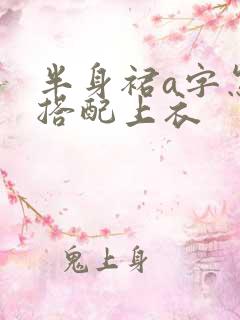 半身裙a字
搭配上衣
鬼上身